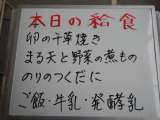 本日の給食
卵の千草焼き
まる天と野菜の煮もの
のりのつくだに
ご飯・牛乳・発酵乳